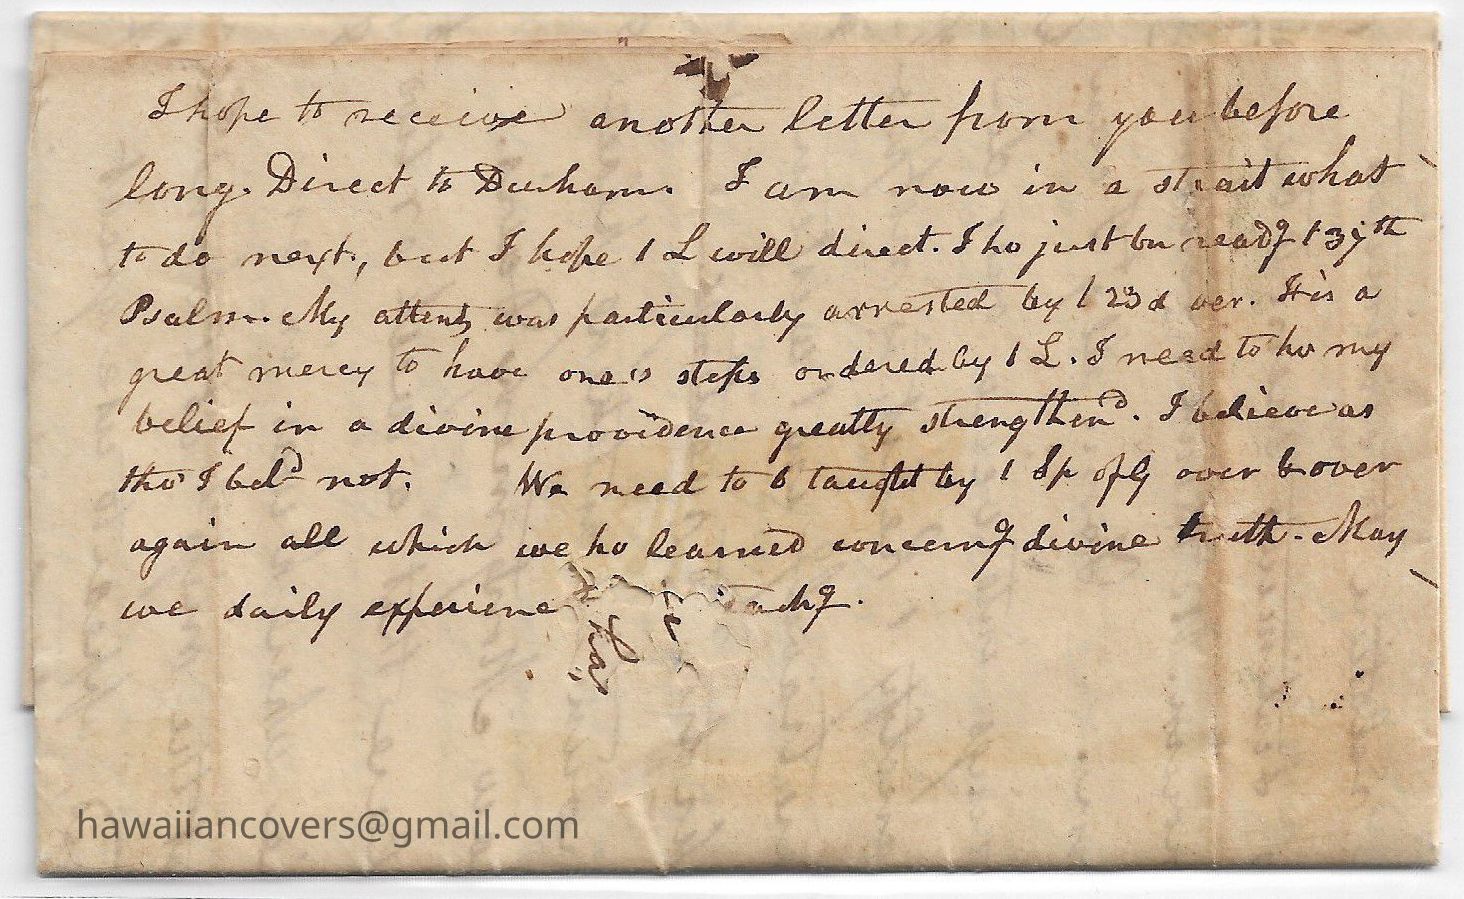 I hope to receive another letter from you before
long. Direct to Durham. I am now in a strait what
to do next, but I hope 1 L will direct. I ho just bn readg 1 37th
Psalm. My attentn was particularly arrested by 1 23d ver. It is a
great mercy to have one's steps ordered by 1 L. I need to ho my
belief in a divine providence greatly strengthend. I believe as
tho' I beld not. We need to b taught by 1 Sp of G over & over
again all which we ho learned concerng divine truth. May
we daily experience teachg.
hawaiiancovers@gmail.com